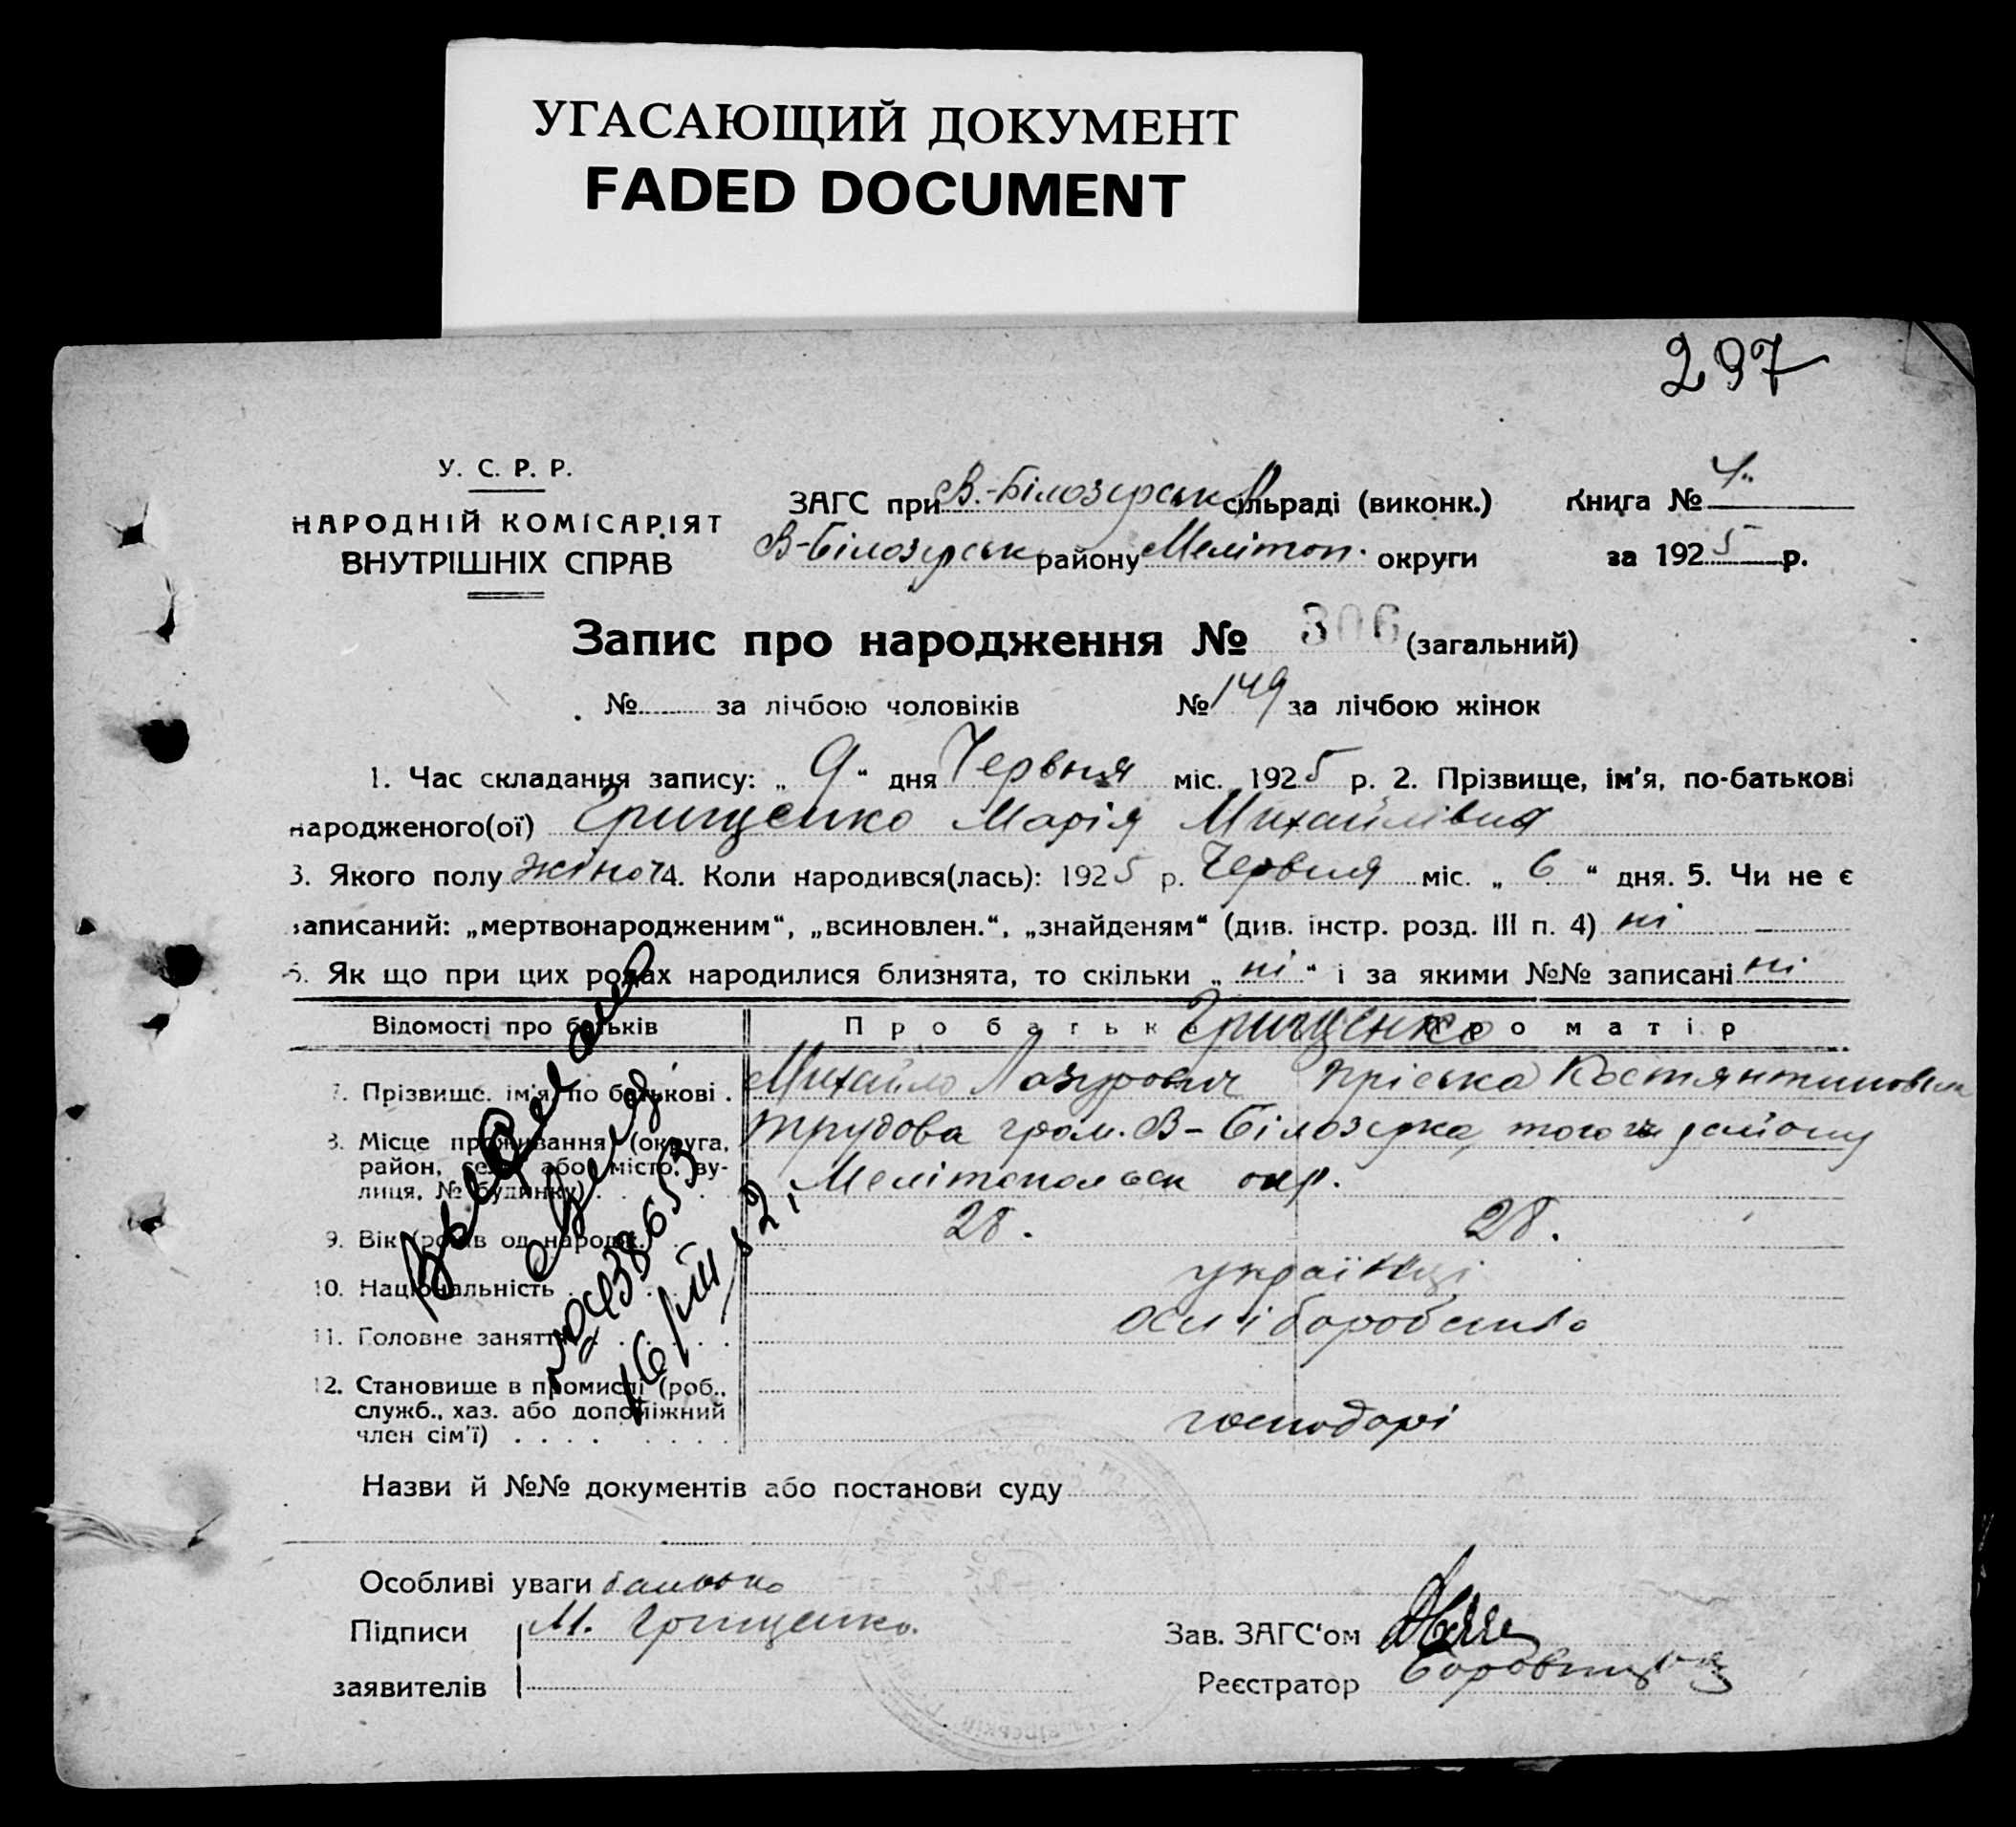 УГАСАЮЩИЙ ДОКУМЕНТ
FADED DOCUMENT
297
У. С. Р. Р.
НАРОДНІЙ КОМІСАРІЯТ
ВНУТРІШНІХ СПРАВ
ЗАГС при В.-Білозерськ сільраді (виконк.)
В-Білозерськ району Мелітоп. округи
Книга № 4.
за 1925 р.
Запис про народження № 306 (загальний)
№ за лічбою чоловіків № 149 за лічбою жінок
1. Час складання запису: „ 9 “ дня Червня міс. 1925 р. 2. Прізвище, ім'я, по-батькові
народженого(ої) Грищенко Марія Михайлівна
3. Якого полу жіноч 4. Коли народився(лась): 1925 р. Червня міс. „ 6 “ дня. 5. Чи не є
записаний: „мертвонародженим“, „всиновлен.“, „знайденям“ (див. інстр. розд. III п. 4) ні
6. Як що при цих родах народилися близнята, то скільки „ ні “ і за якими №№ записані ні
Відомості про батьків Про батька Грищенко Про матір
7. Прізвище, ім'я, по батькові . Михайло Лазурович Пріська Костянтиновна
8. Місце проживання (округа, район, село або місто, ву-
лиця, № будинку) . трудова гром. В-Білозерка, того ж району
Мелітопольськ окр.
9. Вік (років од народж.) 28. 28.
10. Національність українці
11. Головне заняття
12. Становище в промислі (роб.,
служб., хаз. або допоміжний
член сім'ї) господарі
Назви й №№ документів або постанови суду
Особливі уваги батько
Підписи М. Грищенко.
заявителів
Зав. ЗАГС'ом
Реєстратор